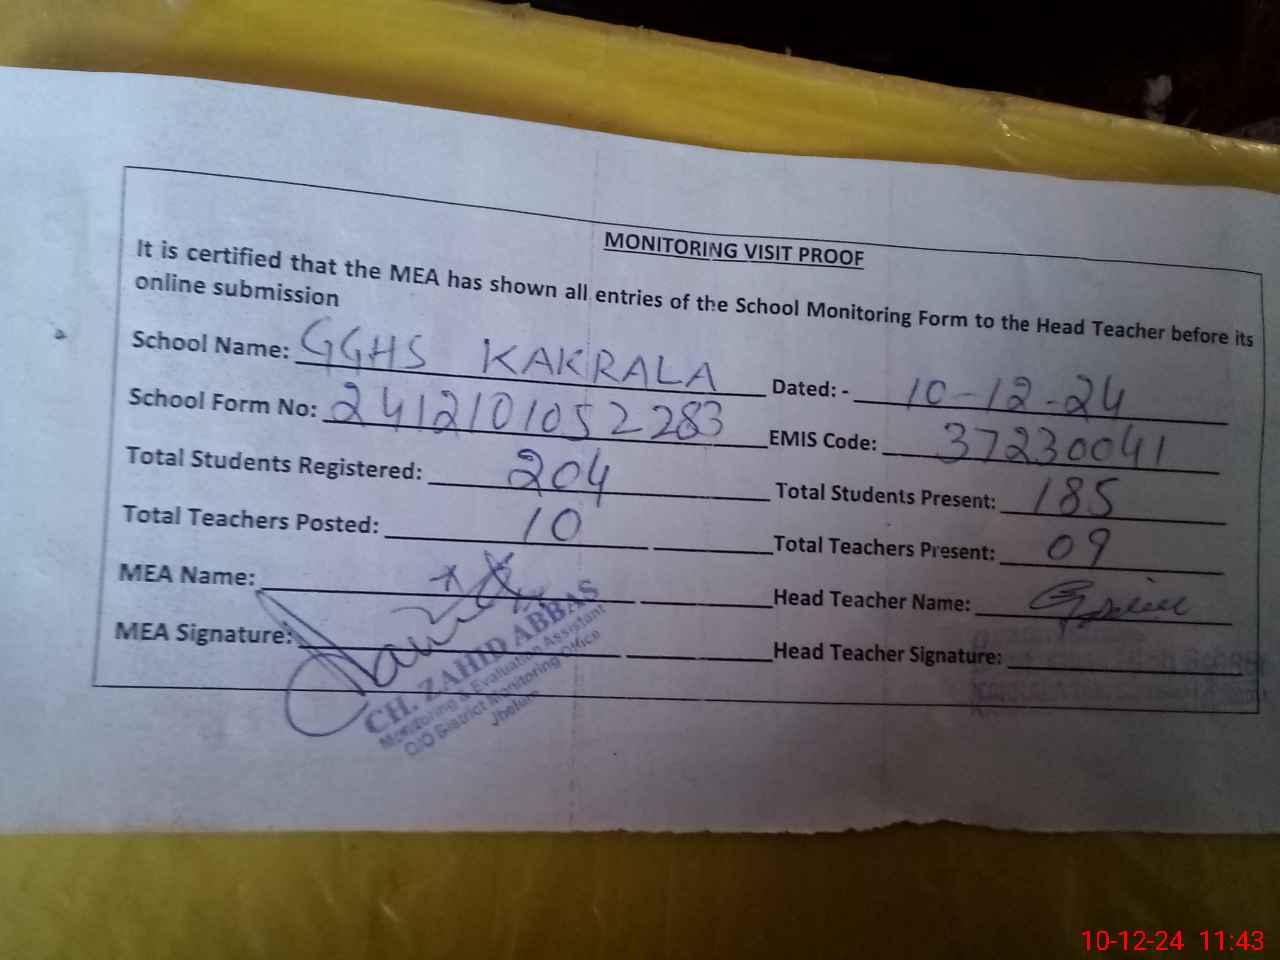 MONITORING VISIT PROOF
It is certified that the MEA has shown all entries of the School Monitoring Form to the Head Teacher before its
online submission
School Name: GGHS KAKRALA Dated: - 10-12-24
School Form No: 2412101052283 EMIS Code: 37230041
Total Students Registered: 204 Total Students Present: 185
Total Teachers Posted: 10 Total Teachers Present: 09
MEA Name: Head Teacher Name:
MEA Signature: Head Teacher Signature:
CH. ZAHID ABBAS
Monitoring & Evaluation Assistant
O/O District Monitoring Office
Jhelum
10-12-24 11:43